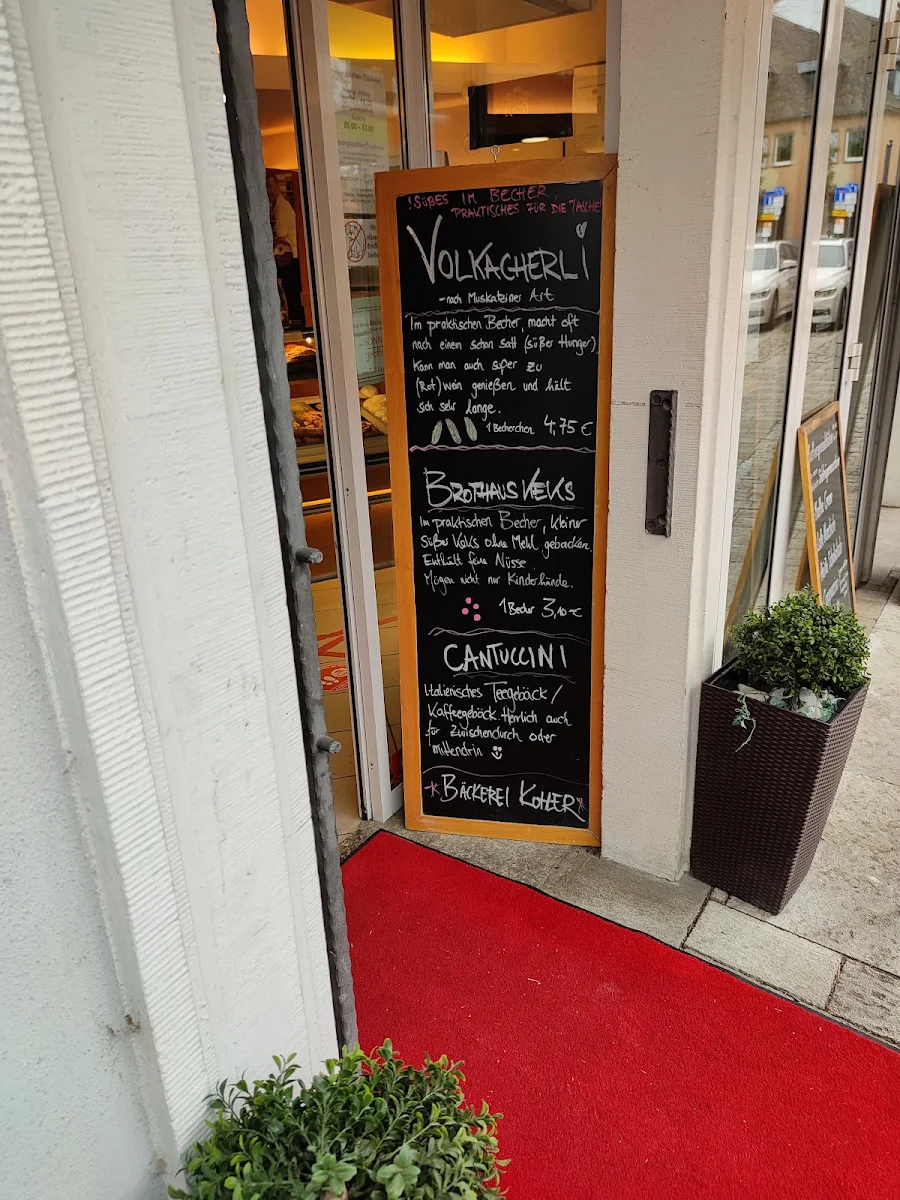 !SÜßES IM BECHER
PRAKTISCHES FÜR DIE TASCHE!
VOLKACHERLI
-nach Muskatziner Art
Im praktischen Becher, macht oft
nach einem schon satt (süßer Hunger)
Kann man auch super zu
(Rot)wein genießen und hält
sich sehr lange.
1 Becherchen 4,75 €
BROTHAUSKEKS
Im praktischen Becher, kleine
süße Keks ohne Mehl gebacken.
Enthält feine Nüsse.
Mögen nicht nur Kinderhände.
1 Becher 3,10 €
CANTUCCINI
Italienisches Teegebäck/
Kaffeegebäck. Herrlich auch
für zwischendurch oder
mittendrin
BÄCKEREI KOHLER